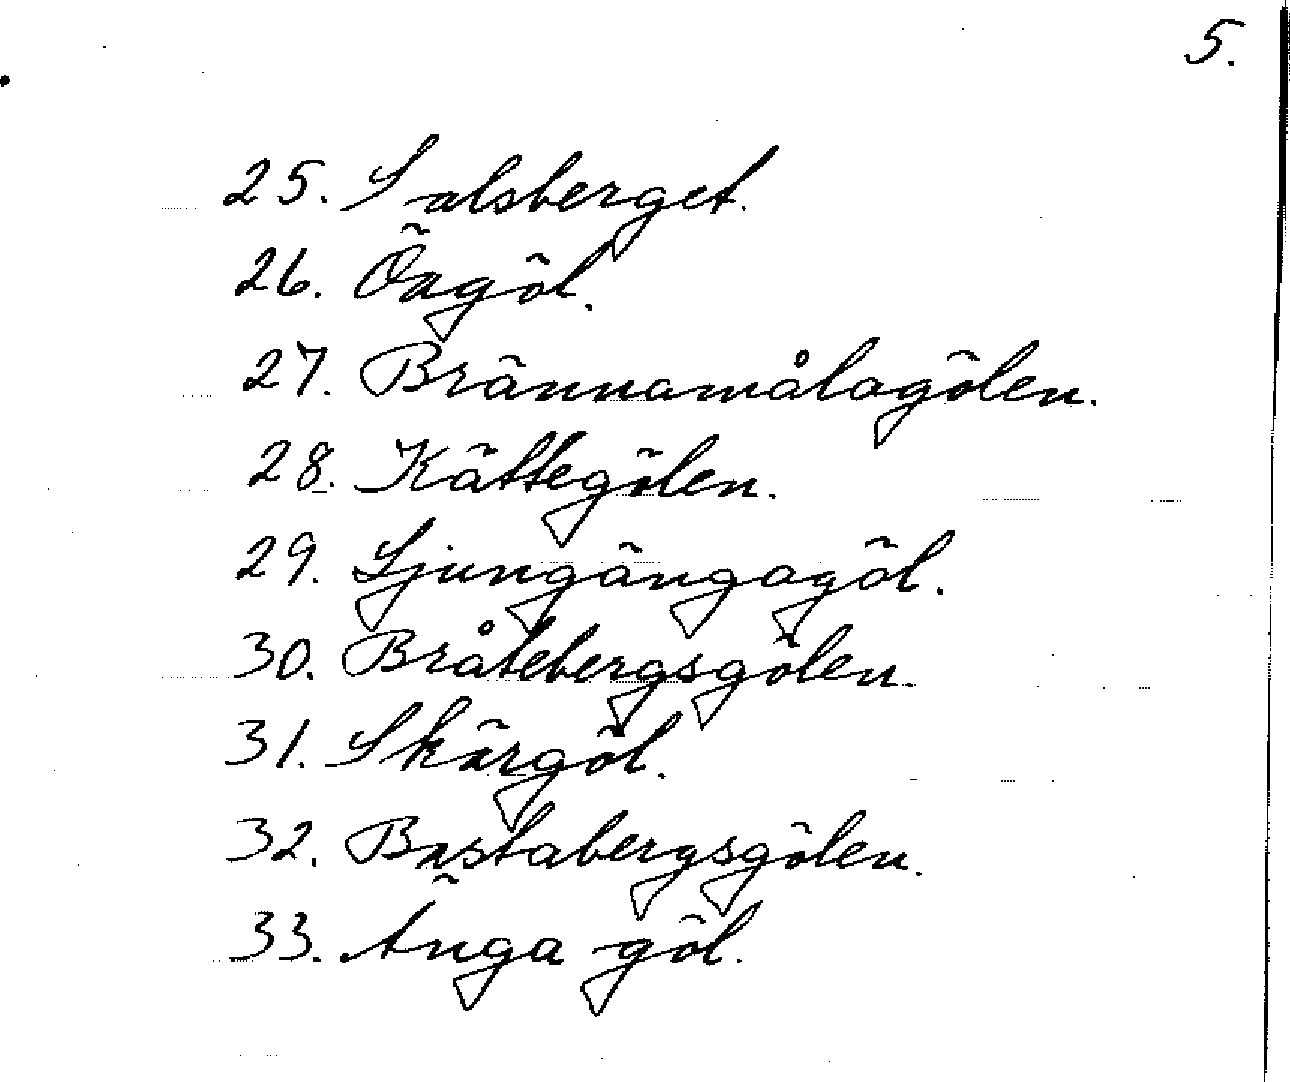 5.
25. Salsberget.
26. Öagöl.
27. Brännamålagölen.
28. Kättegölen.
29. Ljungängagöl.
30. Bråtebergsgölen.
31. Skärgöl.
32. Bastabergsgölen.
33. Änga göl.